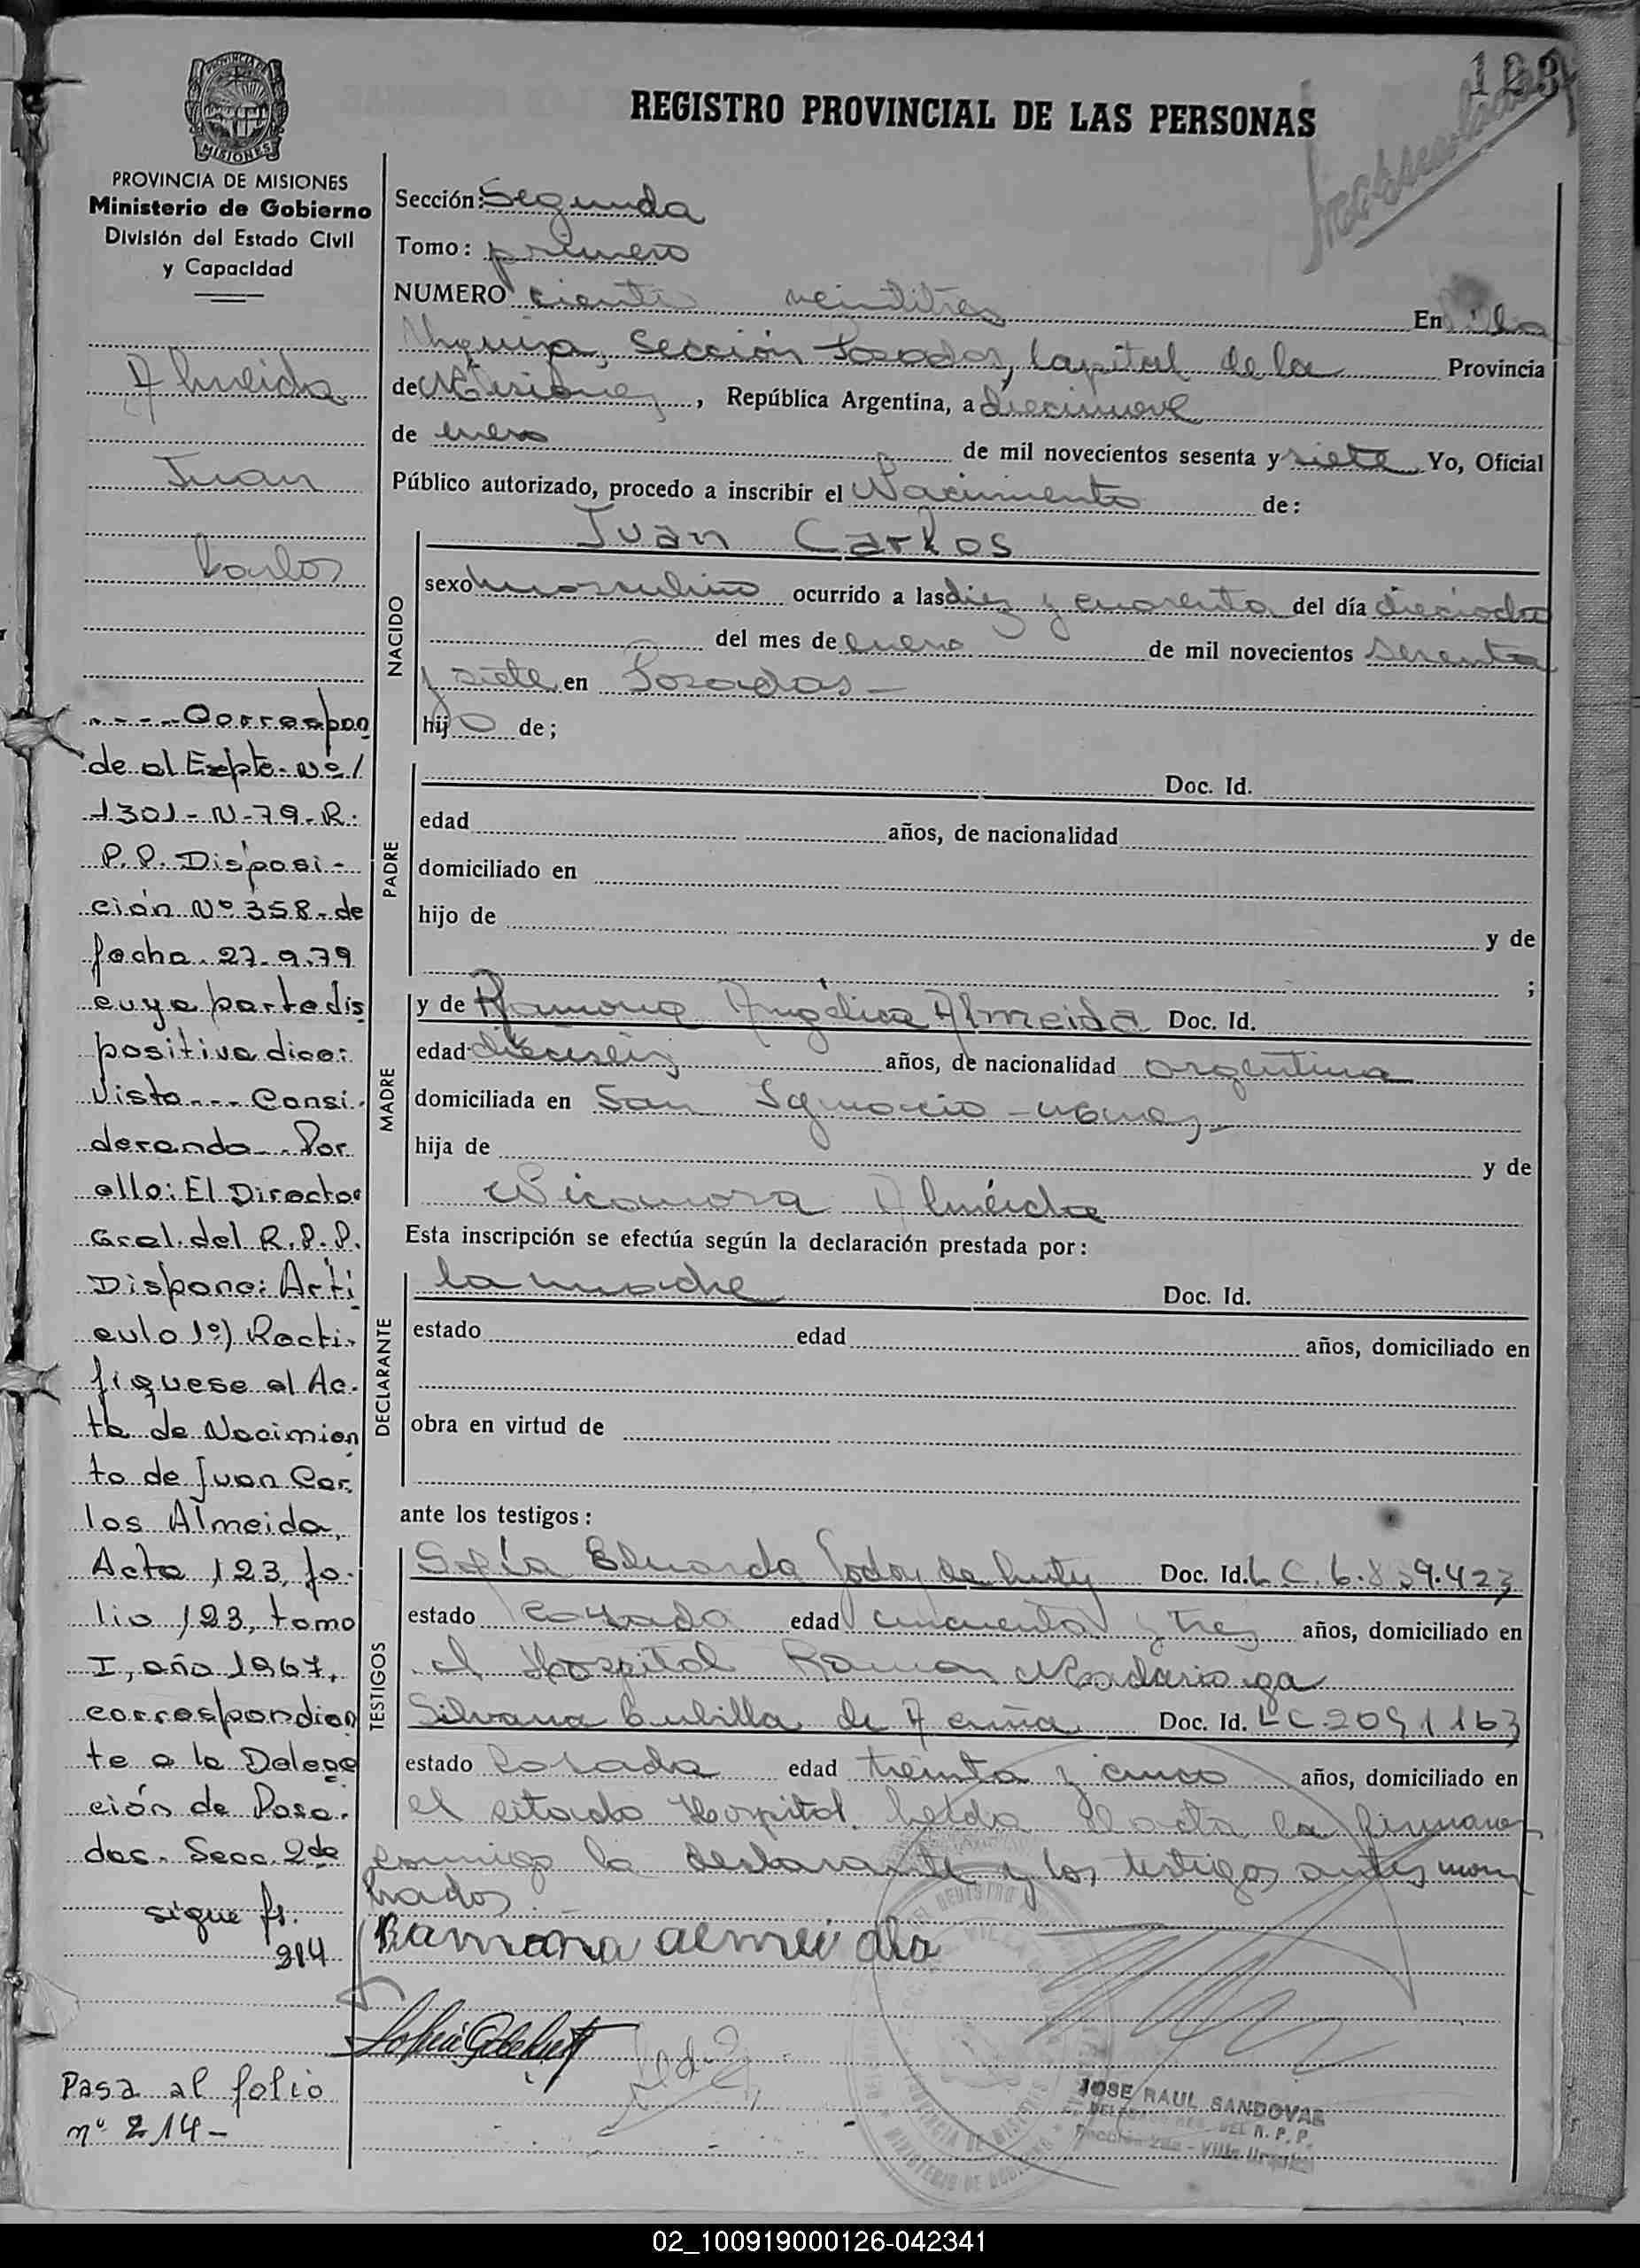 123
REGISTRO PROVINCIAL DE LAS PERSONAS
PROVINCIA DE MISIONES
Ministerio de Gobierno
División del Estado Civil
y Capacidad
Almeida
Juan
Carlos
----Correspon
de al Expte. Nº/
1301-N-79-R.
P.P. Disposi-
ción Nº 358-de
fecha 27-9-79
cuya parte dis
positiva dice:
Visto--- Consi.
derando--.Por
ello: El Director
Gral. del R.P.P.
Dispone: Artí
culo 1º) Recti-
fiquese el Ac-
ta de Nacimien
to de Juan Car
los Almeida,
Acta 123, fo-
lio 123, tomo
I, año 1967,
correspondien
te a la Delega
ción de Posa-
das. Secc. 2da
sigue fs.
214
Pasa al folio
nº 214-
Sección: Segunda
Tomo: primero
NUMERO ciento veintitres En Villa
Urquiza, Sección Posadas, Capital de la Provincia
de Misiones, República Argentina, a diecinueve
de enero de mil novecientos sesenta y siete Yo, Oficial
Público autorizado, procedo a inscribir el Nacimiento de:
NACIDO
Juan Carlos
sexo masculino ocurrido a las diez y cuarenta del día dieciocho
del mes de enero de mil novecientos sesenta
y siete en Posadas-
hijo de;
PADRE
Doc. Id.
edad años, de nacionalidad
domiciliado en
hijo de y de
;
MADRE
y de Ramona Angélica Almeida Doc. Id.
edad dieciseis años, de nacionalidad argentina
domiciliada en San Ignacio -
hija de y de
Nicanora Almeida
Esta inscripción se efectúa según la declaración prestada por:
DECLARANTE
la madre Doc. Id.
estado edad años, domiciliado en
obra en virtud de
ante los testigos:
TESTIGOS
Sofía Eduarda Godoy de Doc. Id. L C. 6.839.423
estado casada edad cincuenta y tres años, domiciliado en
el Hospital Ramon Madariaga
Silvana Cubilla de Acuña Doc. Id. L C. 2091163
estado casada edad treinta y cinco años, domiciliado en
el citado Hospital. Leída el acta la firman
conmigo la declarante y los testigos antes nom
brados.
Ramona almeida
JOSE RAUL SANDOVAL
DEL R. P. P.
Sección 2da - Villa Urquiza
02_100919000126-042341